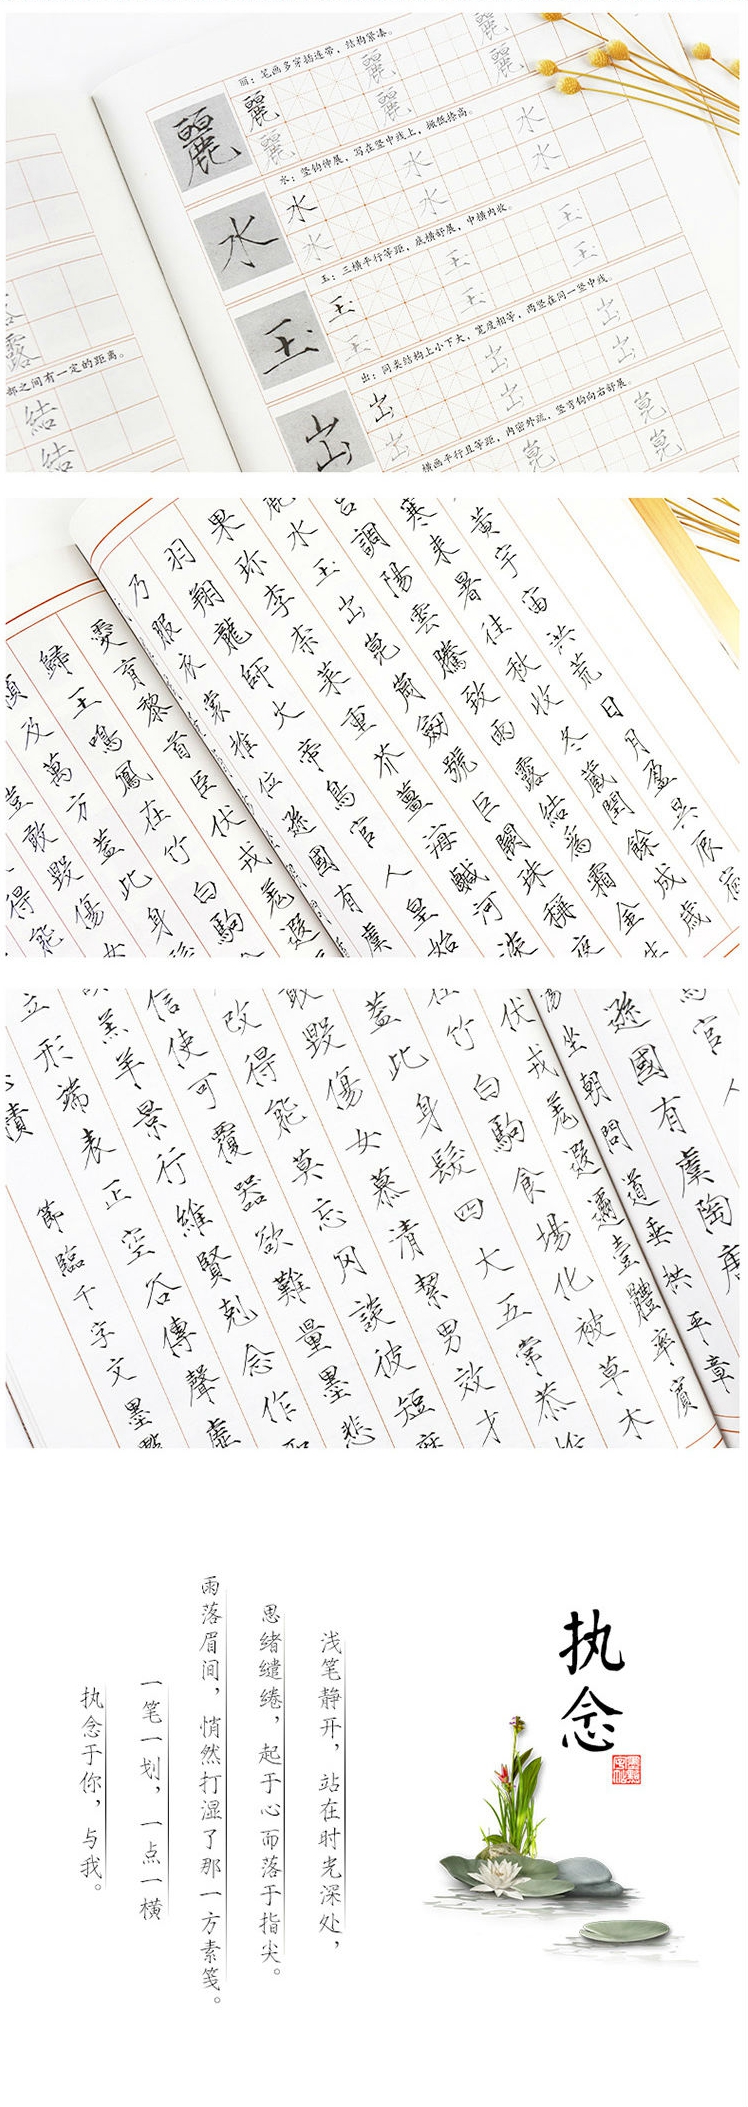 丽：笔画多穿插连带，结构紧凑。
麗 麗 麗 麗
麗 麗
水：竖钩伸展，写在竖中线上，撇低捺高。
水 水 水 水
水 水 水
玉：三横平行等距，底横舒展，中横内收。
玉 玉 玉 玉
玉 玉 玉
出：同类结构上小下大，宽度相等，两竖在同一竖中线。
出 出 出 出
出 出 出
横画平行且等距，内密外疏，竖弯钩向右舒展。
崑 崑
崑 崑
露
部之间有一定的距离。
結
結
黃宇宙洪荒日月盈昃辰宿
寒来暑往秋收冬藏閏餘成歲
呂調陽雲騰致雨露結為霜金生
麗水玉出崑崗劍號巨闕珠稱夜
果珍李柰菜重芥薑海鹹河淡
羽翔龍師火帝鳥官人皇始
乃服衣裳推位遜國有虞
愛育黎首臣伏戎羌遐
歸王鳴鳳在竹白駒
須及萬方蓋此身髮
豈敢毀傷女
得能
鳥官人
遜國有虞陶唐
湯坐朝問道垂拱平章
伏戎羌遐邇壹體率賓
在竹白駒食場化被草木
蓋此身髮四大五常恭惟
敢毀傷女慕清絜男效才
改得能莫忘罔談彼短靡
信使可覆器欲難量墨悲
羔羊景行維賢剋念作聖
立形端表正空谷傳聲虛
積
節臨千字文墨點
执念
浅笔静开，站在时光深处，
思绪缱绻，起于心而落于指尖。
雨落眉间，悄然打湿了那一方素笺。
一笔一划，一点一横
执念于你，与我。